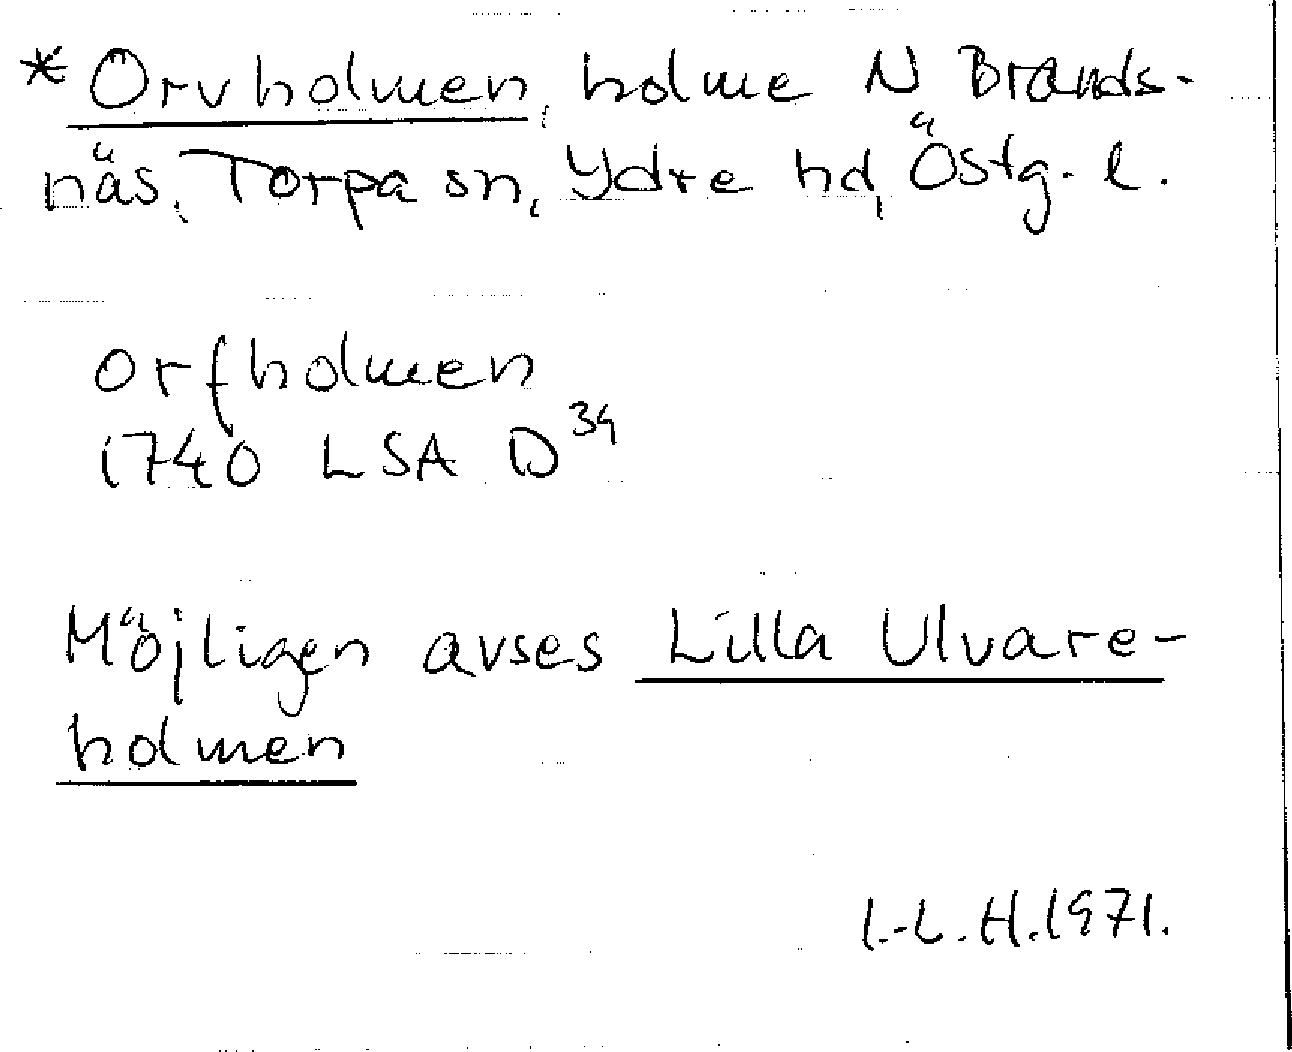 * Orvholmen, holme N Brands-
näs, Torpa sn, Ydre hd, Östg. l.
orfholmen
1740 LSA D³⁴
Möjligen avses Lilla Ulvare-
holmen
I.-L. H. 1971.